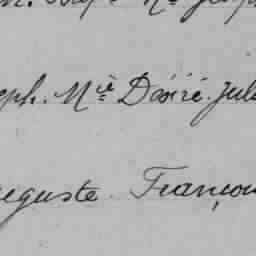 eph. Mie Désiré. Jul
uguste. Françoi